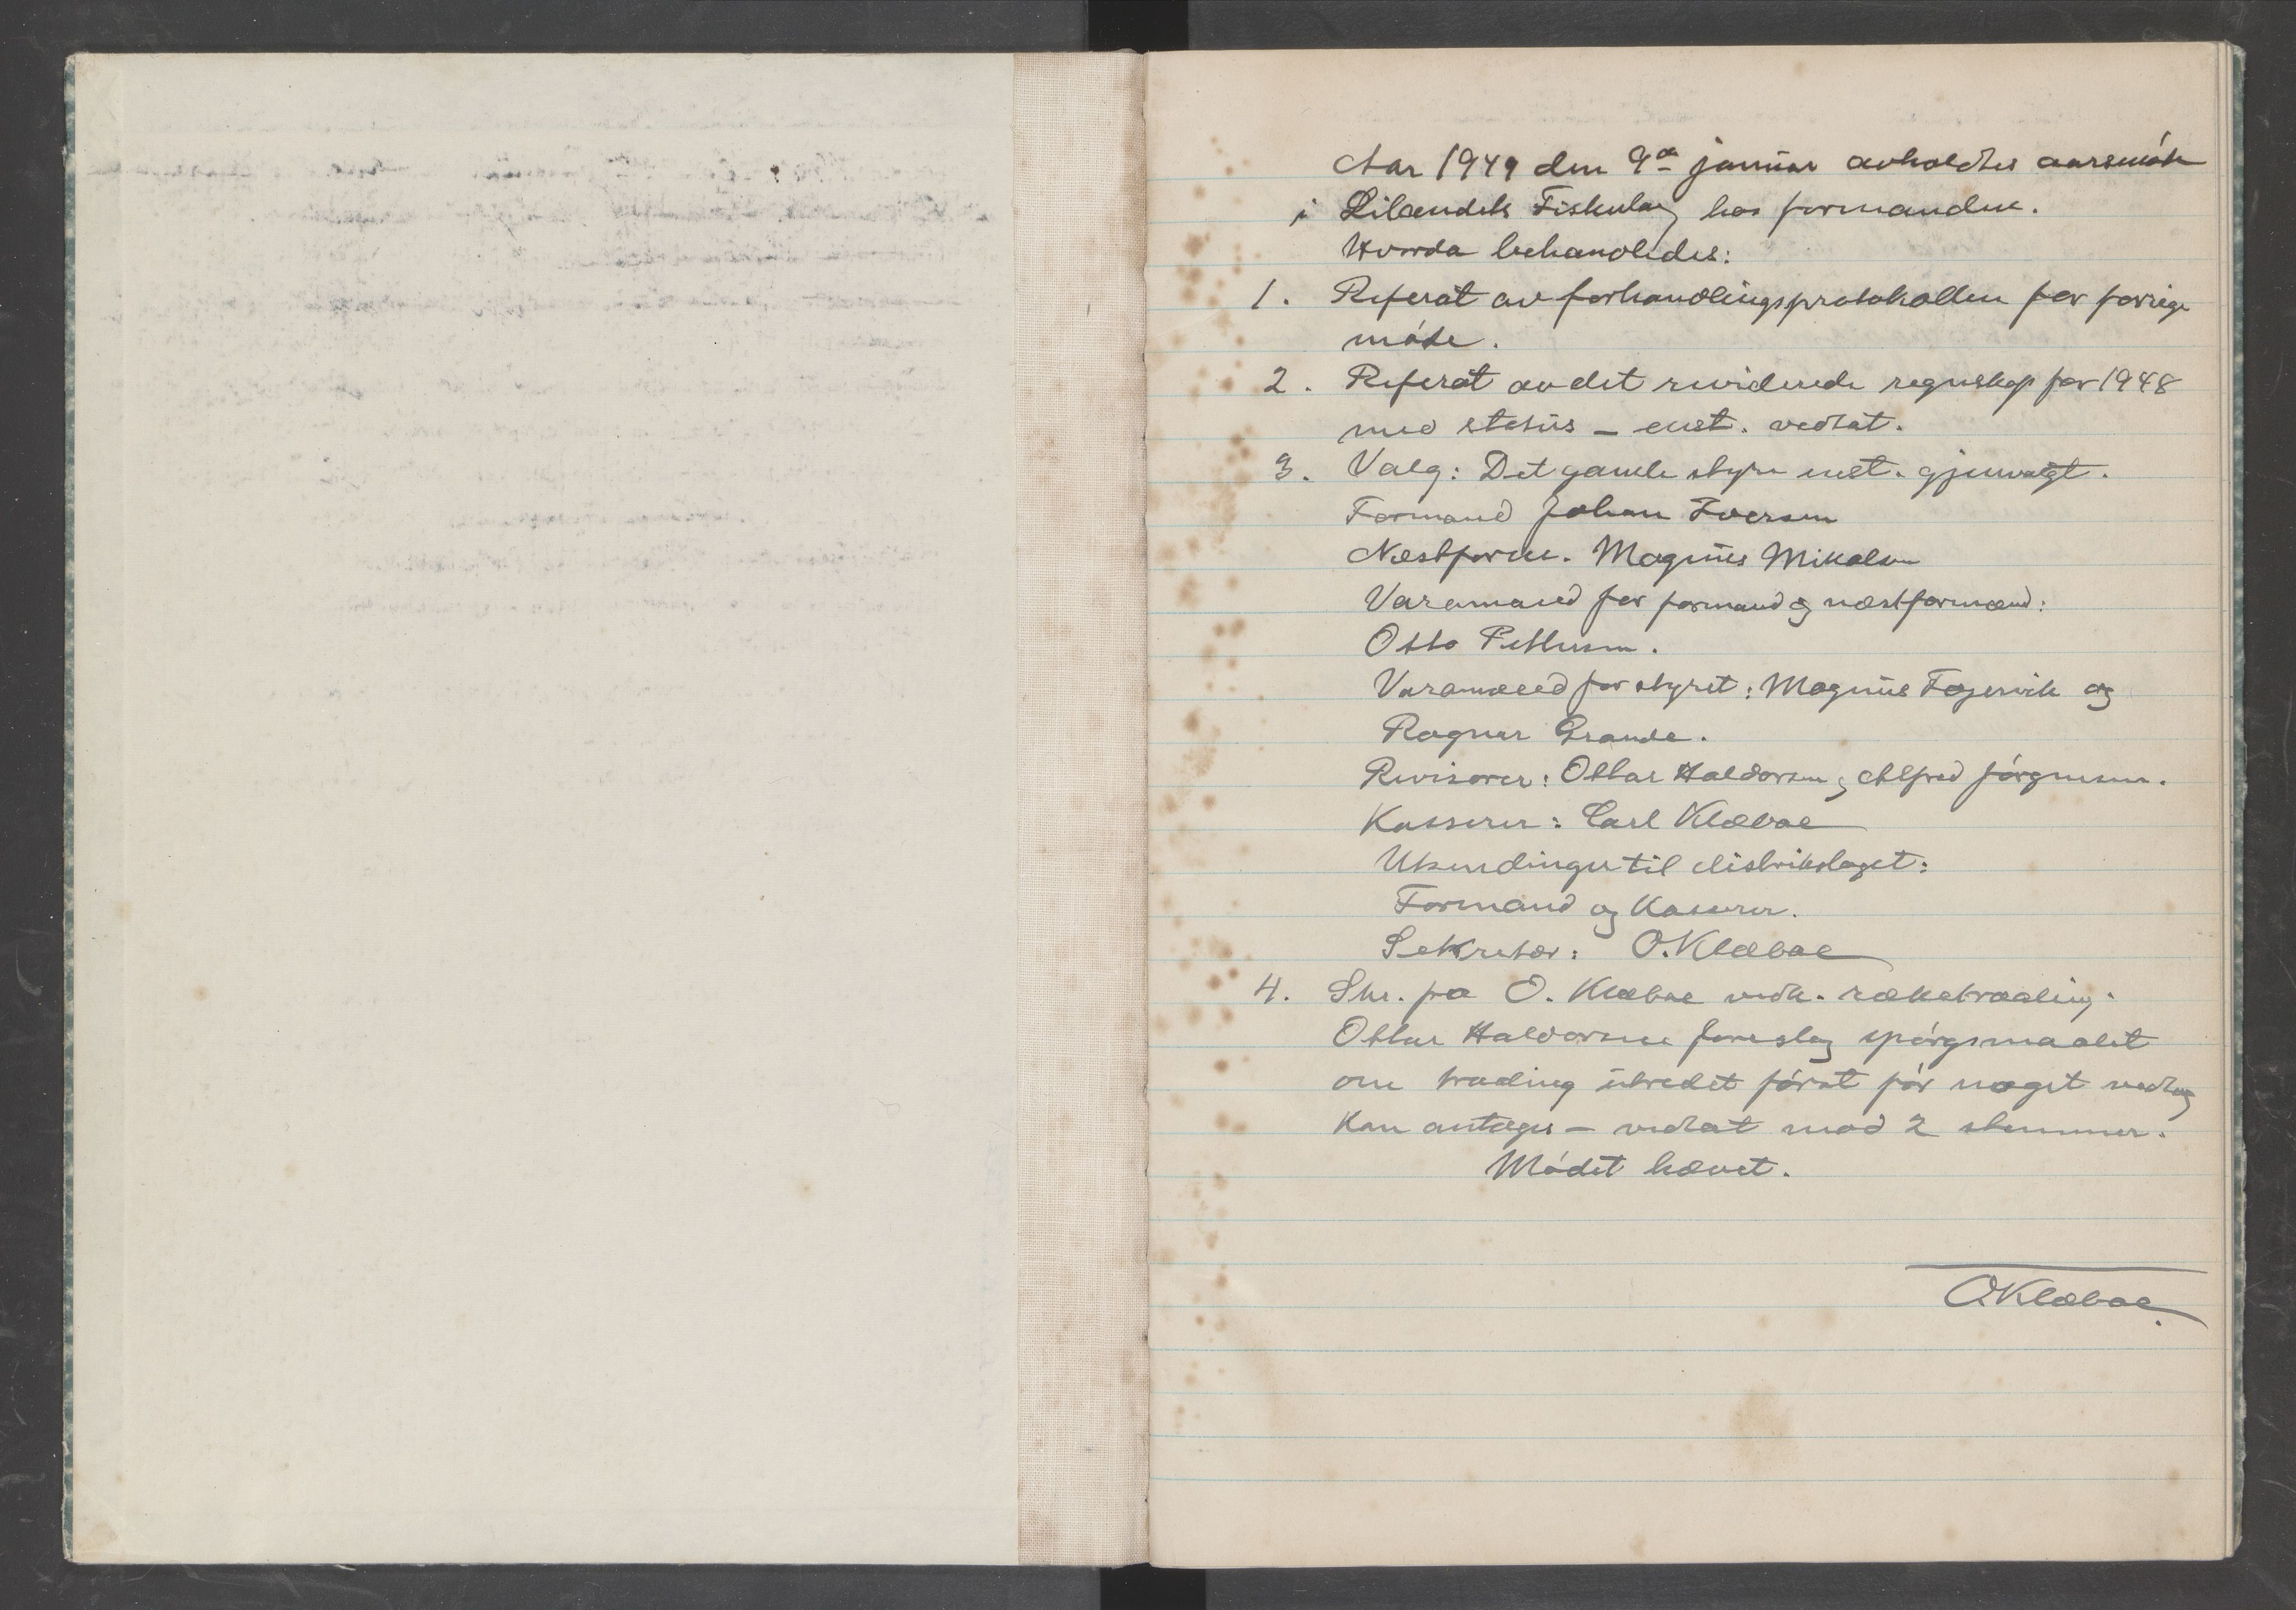 Aar 1949 den 9de januar avholdtes aarsmöte
i Lilandets Fiskerlag hos formanden.
Hvorda behandledes:
1. Referat av forhandlingsprotokollen for forrige
möte.
2. Referat av det reviderede regnskap for 1948
med status – enst. vedtat.
3. Valg: Det gamle styre enst. gjenvalgt.
Formand Johan Iversen
Næstform. Magnus Mikalsen
Varamand for formand og næstformand:
Otto Pettersen.
Varamænd for styret: Magnus Fagervik og
Ragnar Grande.
Revisorer: Ottar Haldorsen og Alfred Jörgensen.
Kasserer: Carl Klæboe
Utsendinger til distriktslaget:
Formand og Kasserer.
Sekretær: O. Klæboe
4. Skr. fra O. Klæboe vedk. ræketraaling.
Ottar Haldorsen foreslog spörgsmaalet
om traaling utredet först för noget vedtag
kan antages – vedtat mod 2 stemmer.
Mödet hævet.
O. Klæboe.